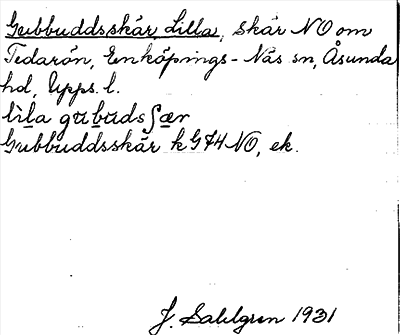 Gubbuddsskär, Lilla, skär NO om
Tedarön, Enköpings-Näs sn, Åsunda
hd, Upps. l.
lìla gubudsʃær
Gubbuddsskär k G 74 NO, ek.
J. Sahlgren 1931